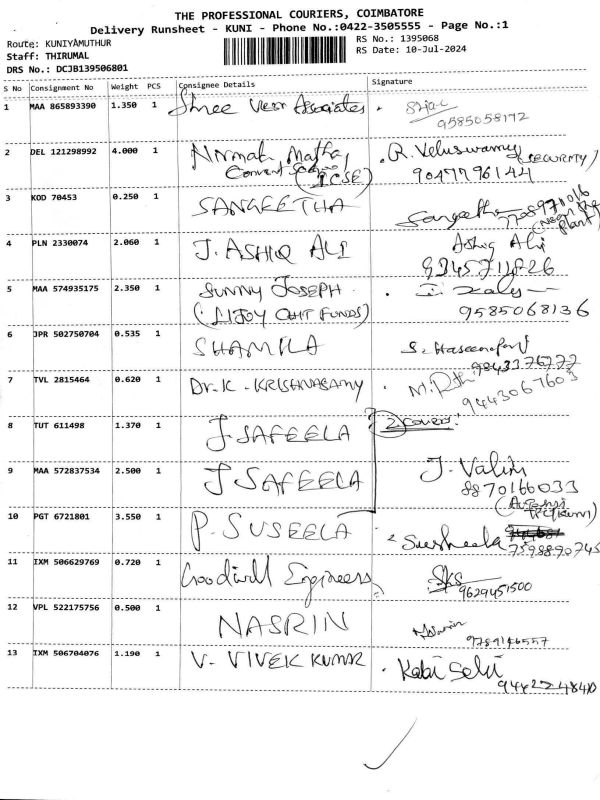 THE PROFESSIONAL COURIERS, COIMBATORE
Delivery Runsheet - KUNI - Phone No.:0422-3505555 - Page No.:1
Route: KUNIYAMUTHUR
RS No.: 1395068
Staff: THIRUMAL
RS Date: 10-Jul-2024
DRS No.: DCJB139506801
S No Consignment No Weight PCS Consignee Details Signature
1 MAA 865893390 1.350 1 Shree Veer Associates
9585058172
2 DEL 121298992 4.000 1 Nirmala Matha R. Veluswamy (SECURITY)
Convent School (ICSE) 9047796144
3 KOD 70453 0.250 1 SANGEETHA Sangeetha 7708971016
(Near the Plant)
4 PLN 2330074 2.060 1 J. ASHIQ ALI Ashiq Ali
5 MAA 574935175 2.350 1 SUNNY JOSEPH
(LIJOY CHIT FUNDS) 9585068136
6 JPR 502750704 0.535 1 SHAMILA
7 TVL 2815464 0.620 1 Dr. K. KRISHNASAMY
9443067603
8 TUT 611498 1.370 1 J. SAFEELA 2 Covers
9 MAA 572837534 2.500 1 J SAFEELA J. Valim
8870166033
10 PGT 6721801 3.550 1 P. SUSEELA Susheela
7598890745
11 IXM 506629769 0.720 1 Goodwill Engineers SKS
9629451500
12 VPL 522175756 0.500 1 NASRIN Nasrin
9789146557
13 IXM 506704076 1.190 1 V. VIVEK KUMAR Kabi Selvi